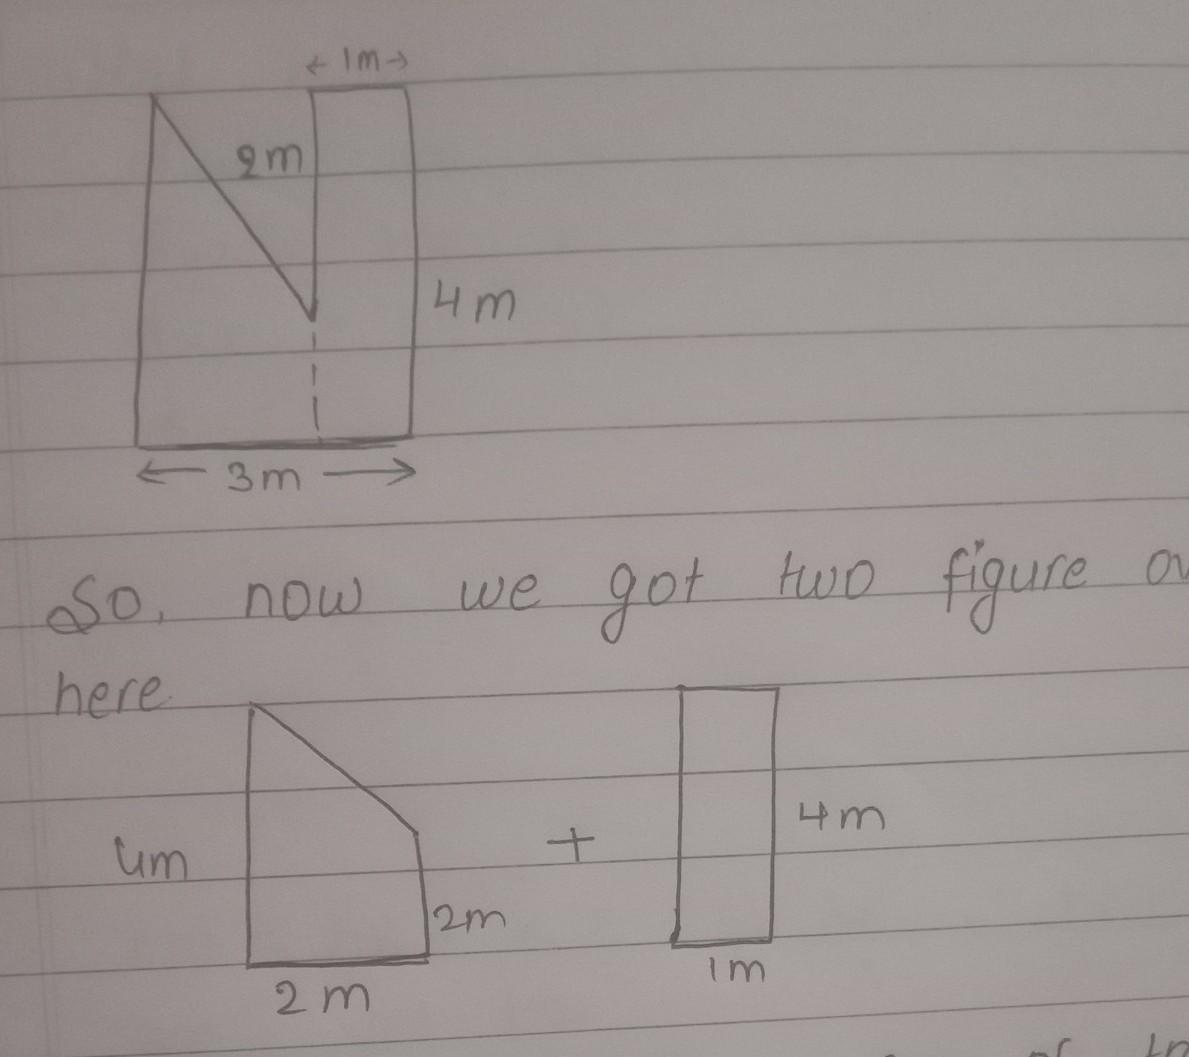 ← 1m →
2m
4m
← 3m →
So, now we got two figure
here
4m + 4m
2m
2m 1m